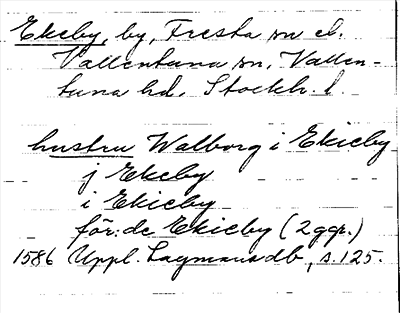 Ekeby, by, Fresta sn el.
Vallentuna sn. Vallen-
tuna hd. Stockh. l.
hustru Walborg i Ekieby
j Ekeby
i Ekieby
för: de Ekieby (2 ggr.)
1586 Uppl. Lagmansdb, s. 125.